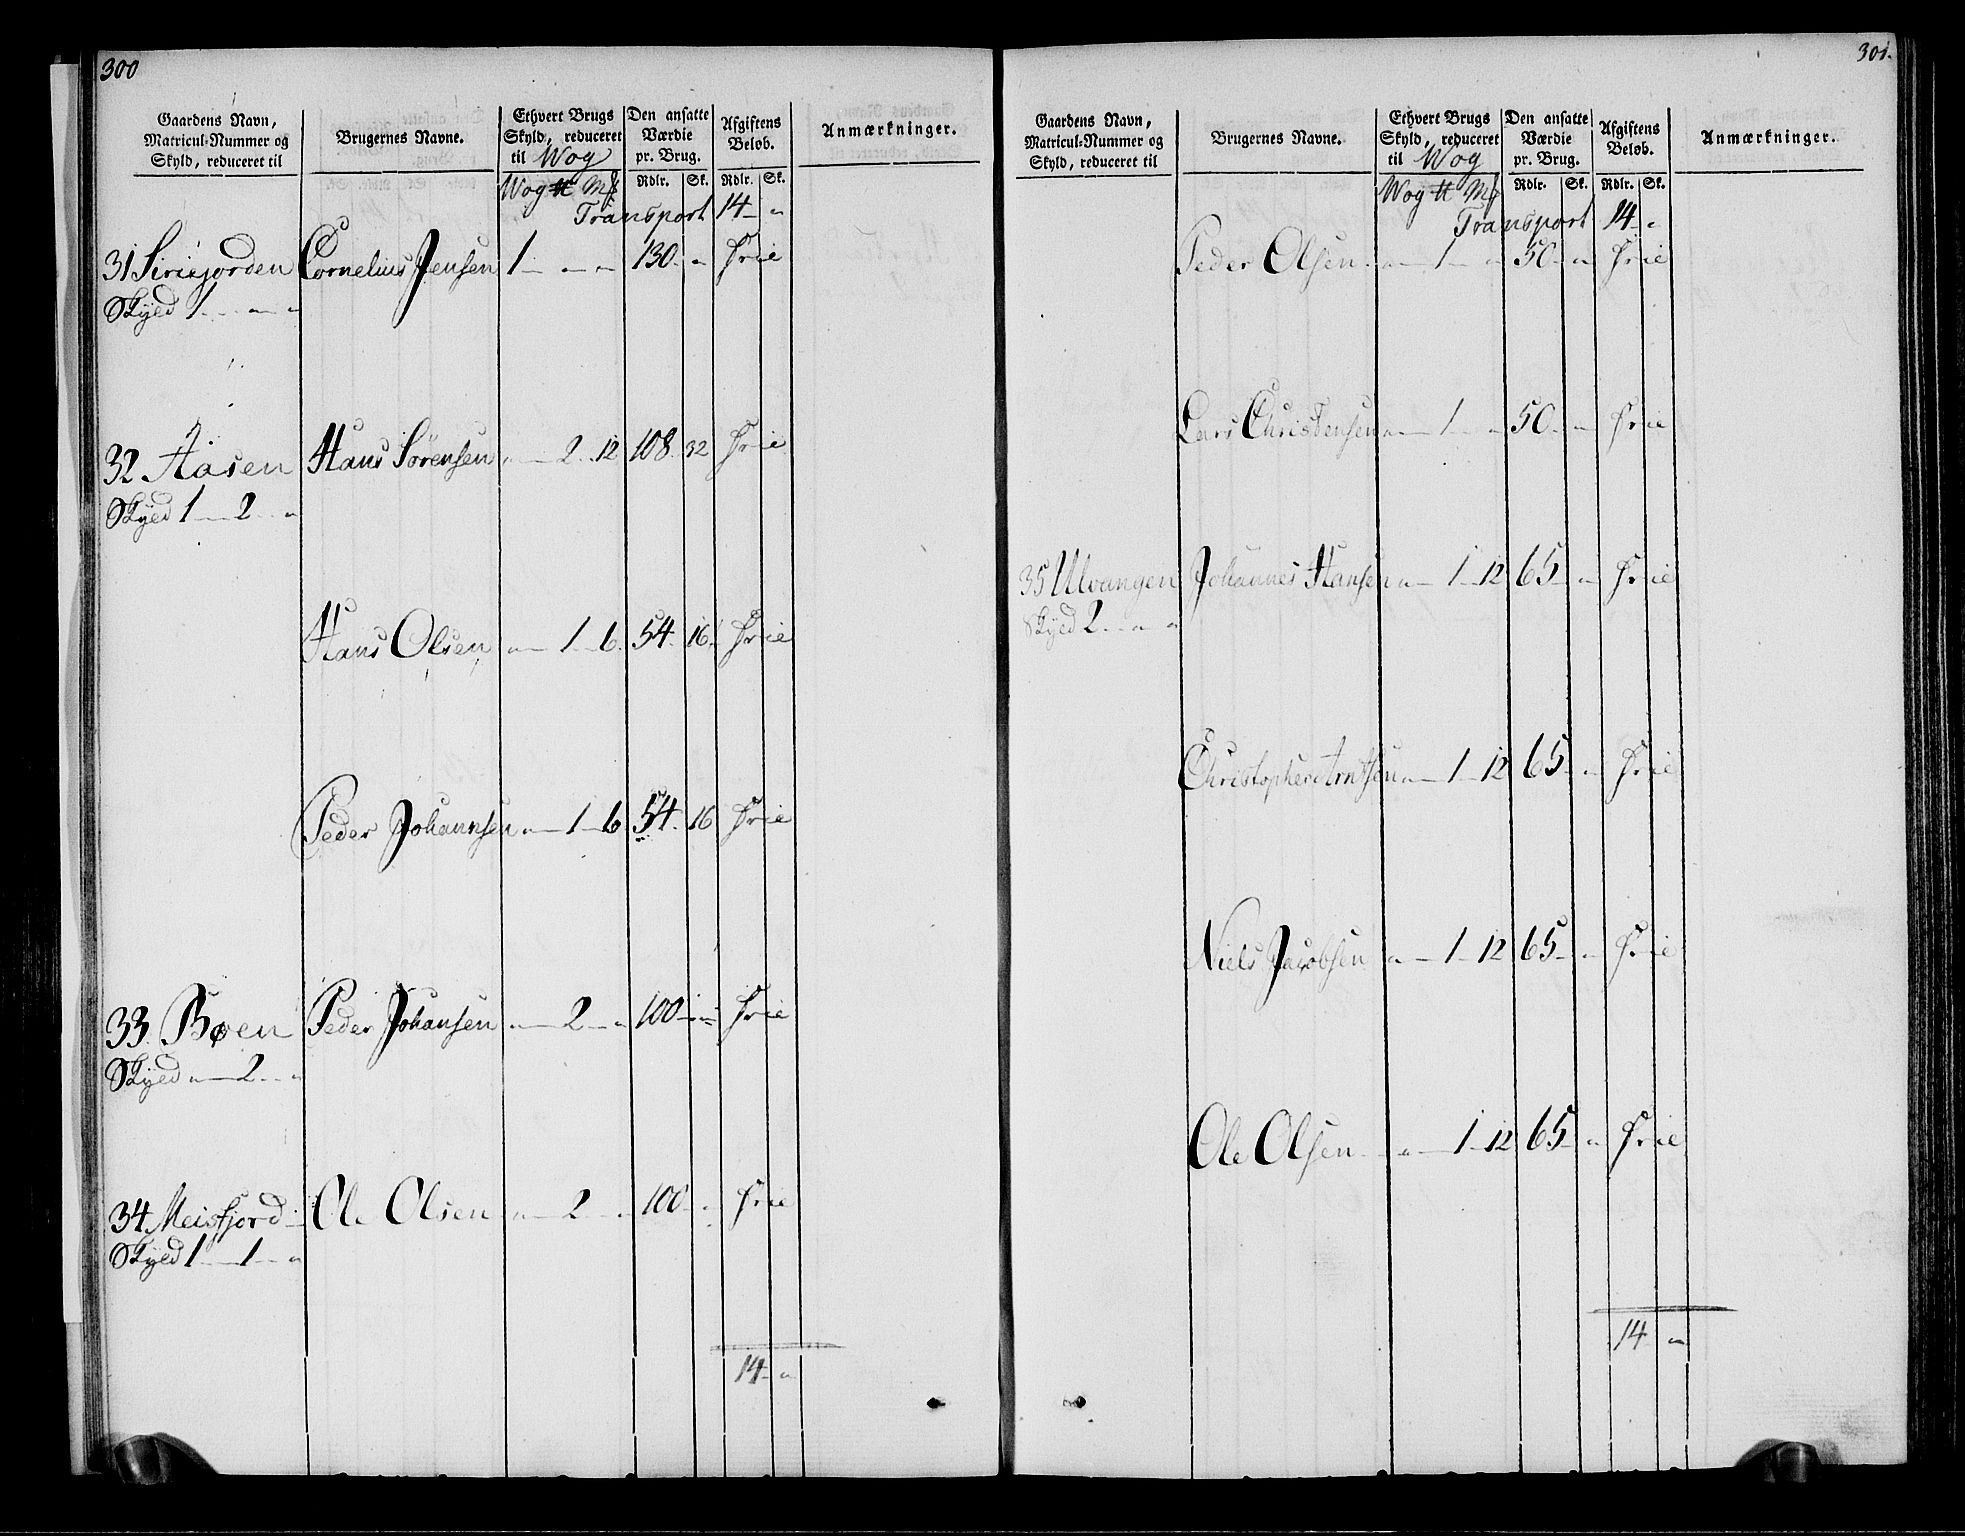 300
Gaardens Navn, Matricul-Nummer og Skyld, reduceret til
Brugernes Navne.
Ethvert Brugs Skyld, reduceret til Wog
Den ansatte Værdie pr. Brug.
Afgiftens Beløb.
Anmærkninger.
Wog ℔ Mk Rdlr. Sk. Rdlr. Sk.
Transport 14 „
31 Siriejorden Cornelius Jensen 1 „ „ 130 „ Frie
Skyld 1 „ „
32 Aasen Hans Sørensen „ 2 12 108 32 Frie
Skyld 1 2 „
Hans Olsen „ 1 6 54 16 Frie
Peder Johannsen „ 1 6 54 16 Frie
33 Bøen Peder Johansen „ 2 „ 100 „ Frie
Skyld „ 2 „
34 Meisfjord Ole Olsen „ 2 „ 100 „ Frie
Skyld 1 1 „
14 „
301.
Gaardens Navn, Matricul-Nummer og Skyld, reduceret til
Brugernes Navne.
Ethvert Brugs Skyld, reduceret til Wog
Den ansatte Værdie pr. Brug.
Afgiftens Beløb.
Anmærkninger.
Wog ℔ Mk Rdlr. Sk. Rdlr. Sk.
Transport 14 „
Peder Olsen „ 1 „ 50 „ Frie
Lars Christensen „ 1 „ 50 „ Frie
35 Ulvangen Johannes Hansen „ 1 12 65 „ Frie
Skyld 2 „ „
Christopher Arntsen „ 1 12 65 „ Frie
Niels Jacobsen „ 1 12 65 „ Frie
Ole Olsen „ 1 12 65 „ Frie
14 „